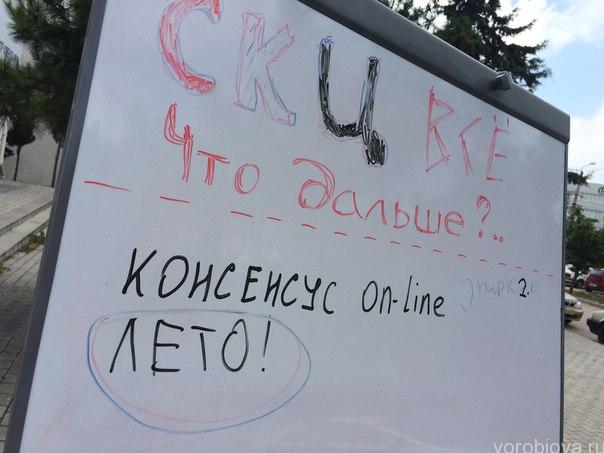 СКЦ ВСЁ
Что дальше?..
КОНСЕНСУС On-line
ЛЕТО!
vorobjova.ru